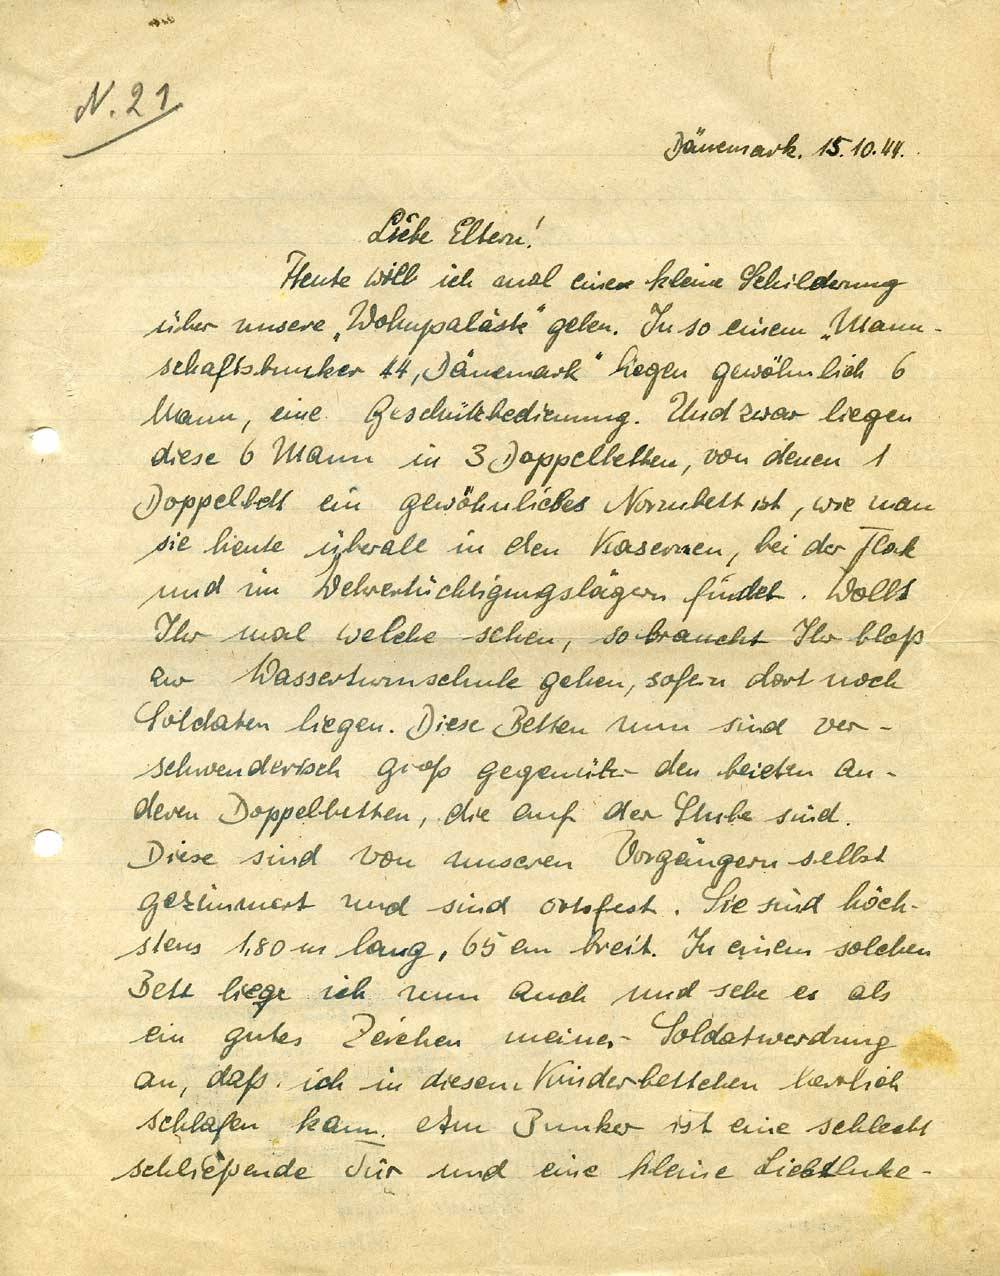 N. 21
Dänemark. 15.10.44.
Liebe Eltern!
Heute will ich mal eine kleine Schilderung
über unsere „Wohnpaläste“ geben. In so einem „Mann-
schaftsbunker 44, Dänemark“ liegen gewöhnlich 6
Mann, eine Geschützbedienung. Und zwar liegen
diese 6 Mann in 3 Doppelbetten, von denen 1
Doppelbett ein gewöhnliches Normbett ist, wie man
sie heute überall in den Kasernen, bei der Flak
und im Wehrertüchtigungslägern findet. Wollt
Ihr mal welche sehen, so braucht Ihr bloß
zur Wasserturmschule gehen, sofern dort noch
Soldaten liegen. Diese Betten nun sind ver-
schwenderisch groß gegenüber den beiden an-
deren Doppelbetten, die auf der Stube sind.
Diese sind von unseren Vorgängern selbst
gezimmert und sind ortsfest. Sie sind höch-
stens 1,80 m lang, 65 cm breit. In einem solchen
Bett liege ich nun auch und sehe es als
ein gutes Zeichen meiner Soldatwerdung
an, daß ich in diesem Kinderbettchen herrlich
schlafen kann. Am Bunker ist eine schlecht
schließende Tür und eine kleine Lichtluke-